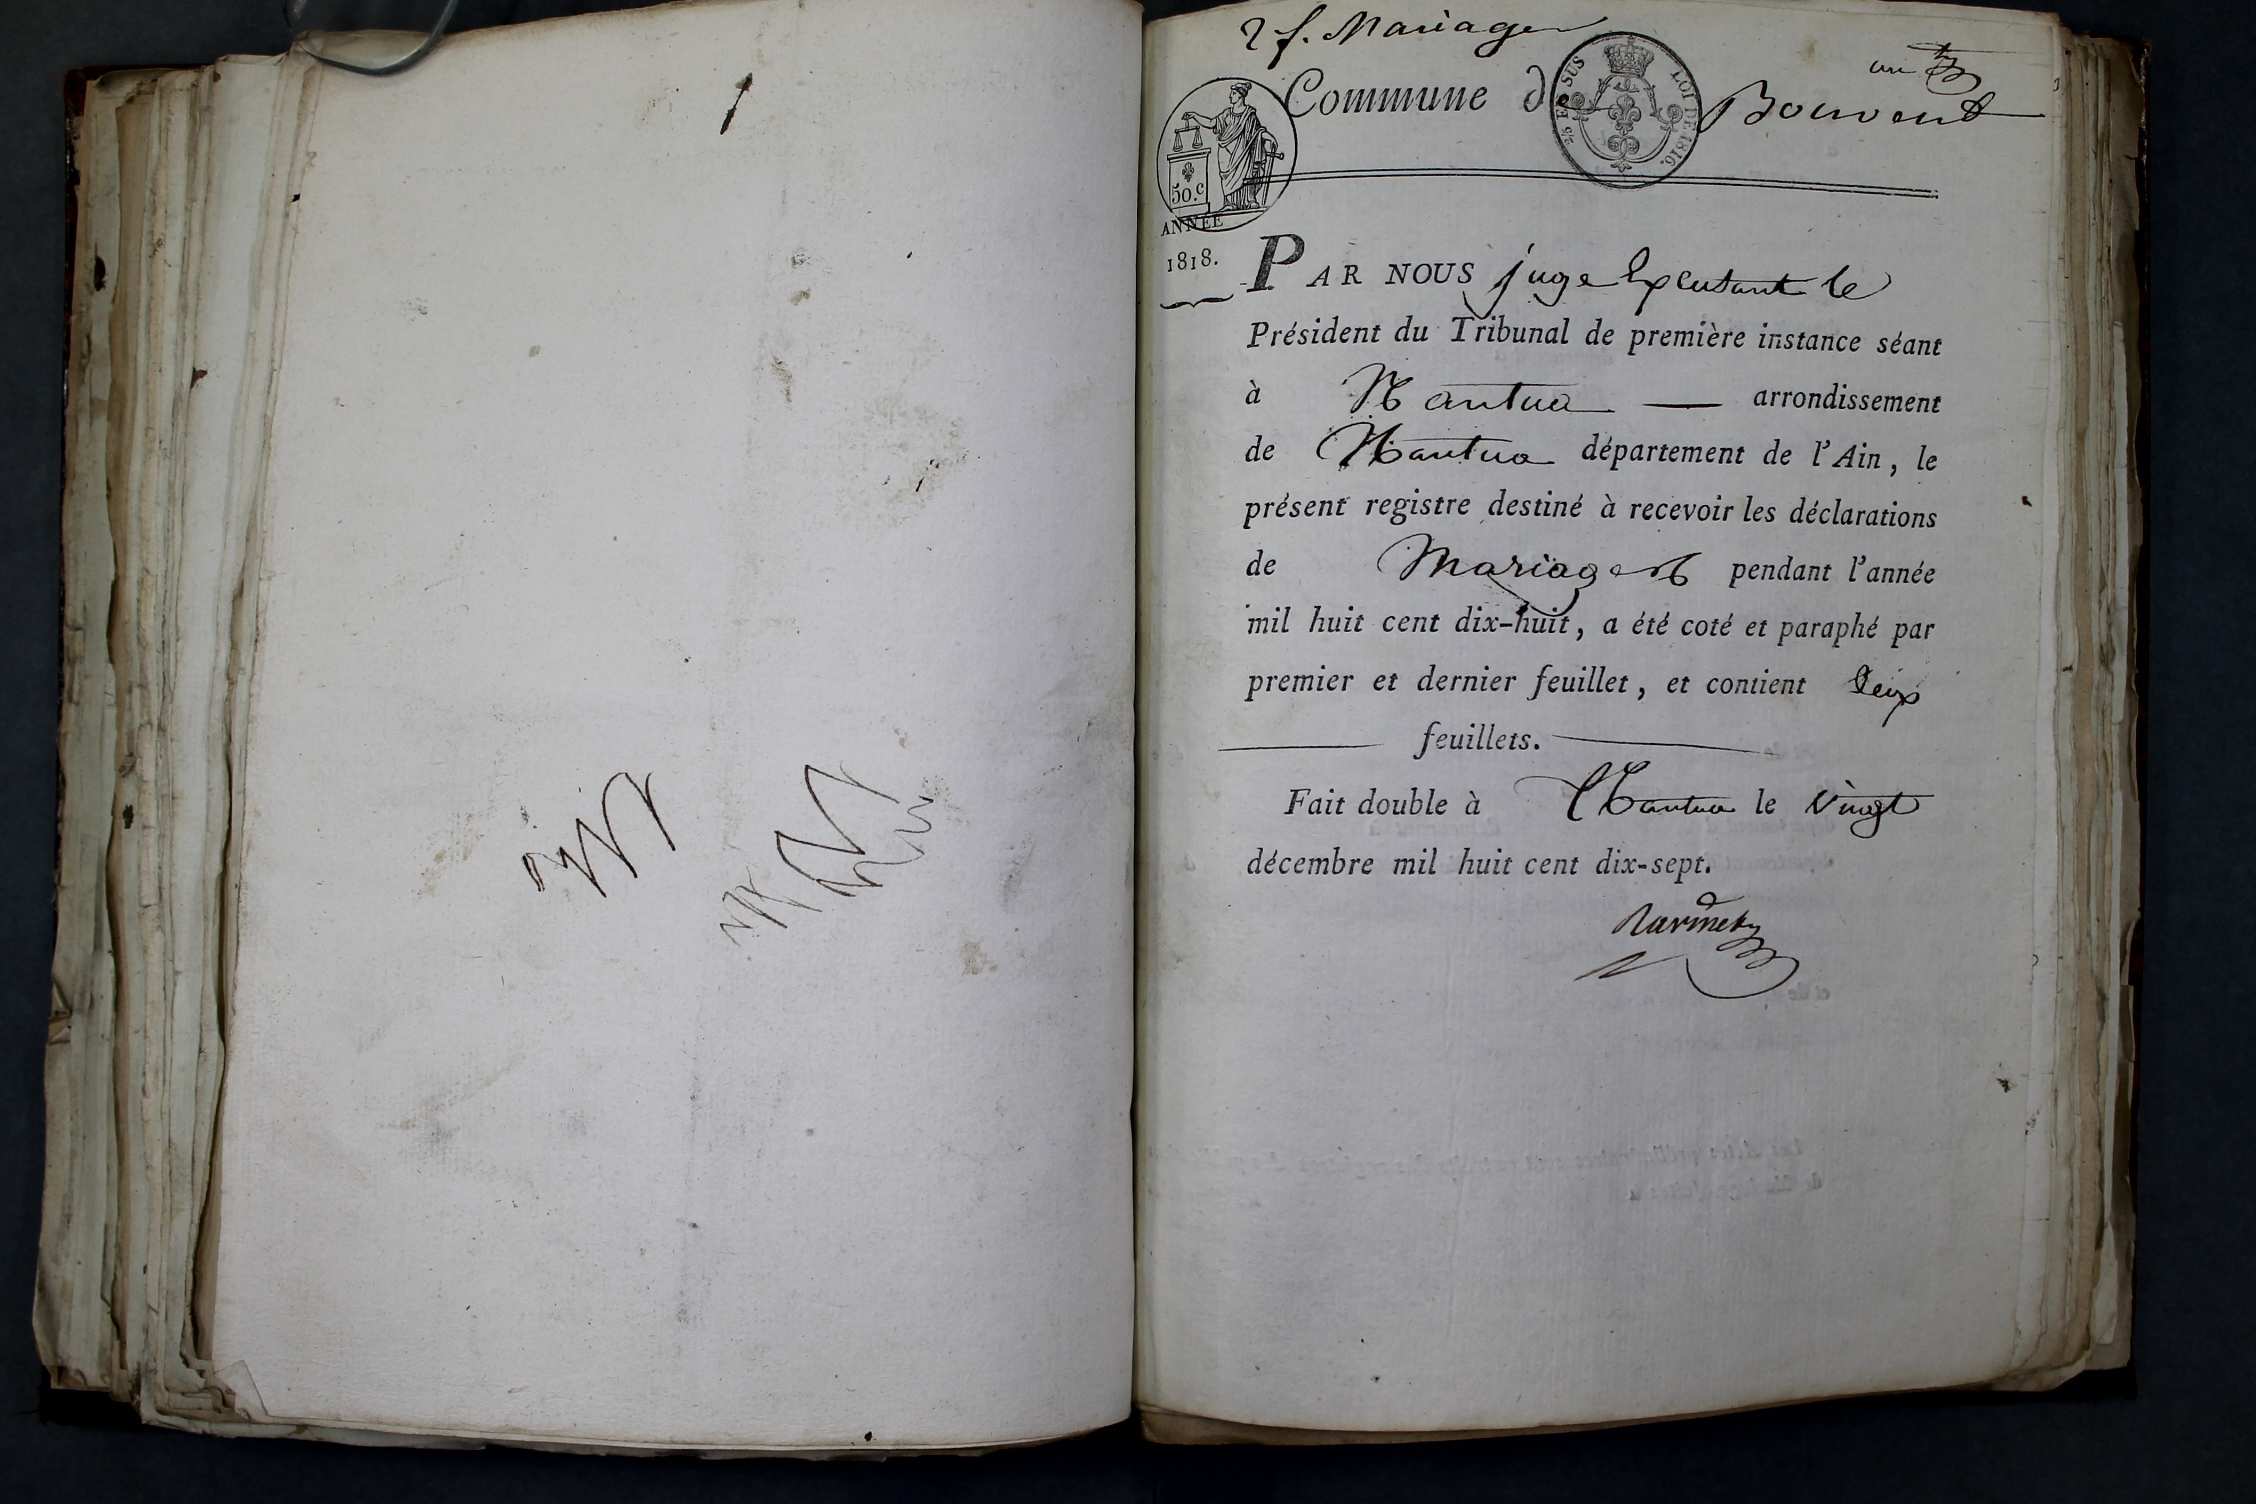 2 f. Mariages
un
Commune d Bouvent
25 EN SUS LOI DE 1816.
50.c
ANNÉE
1818.
PAR NOUS juge Exerçant le
Président du Tribunal de première instance séant
à Nantua — arrondissement
de Nantua département de l'Ain, le
présent registre destiné à recevoir les déclarations
de Mariages pendant l'année
mil huit cent dix-huit, a été coté et paraphé par
premier et dernier feuillet, et contient deux
feuillets.
Fait double à Nantua le vingt
décembre mil huit cent dix-sept.